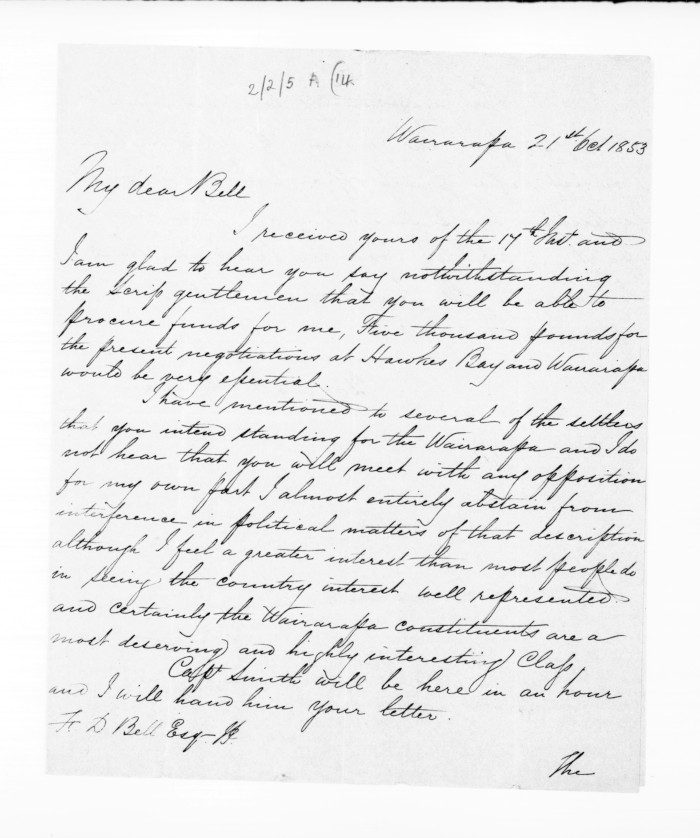 2/2/5 A (14
Wairarapa 21st Oct 1853
My dear Bell
I received yours of the 17th Inst. and
I am glad to hear you say notwithstanding
the scrip gentlemen that you will be able to
procure funds for me, Five thousand pounds for
the present negotiations at Hawkes Bay and Wairarapa
would be very essential.
I have mentioned to several of the settlers
that you intend standing for the Wairarapa and I do
not hear that you will meet with any opposition
for my own part I almost entirely abstain from
interference in political matters of that description
although I feel a greater interest than most people do
in seeing the country interest well represented
and certainly the Wairarapa constituents are a
most deserving and highly interesting Class,
Capt Smith will be here in an hour
and I will hand him your letter.
F D Bell Esq
The